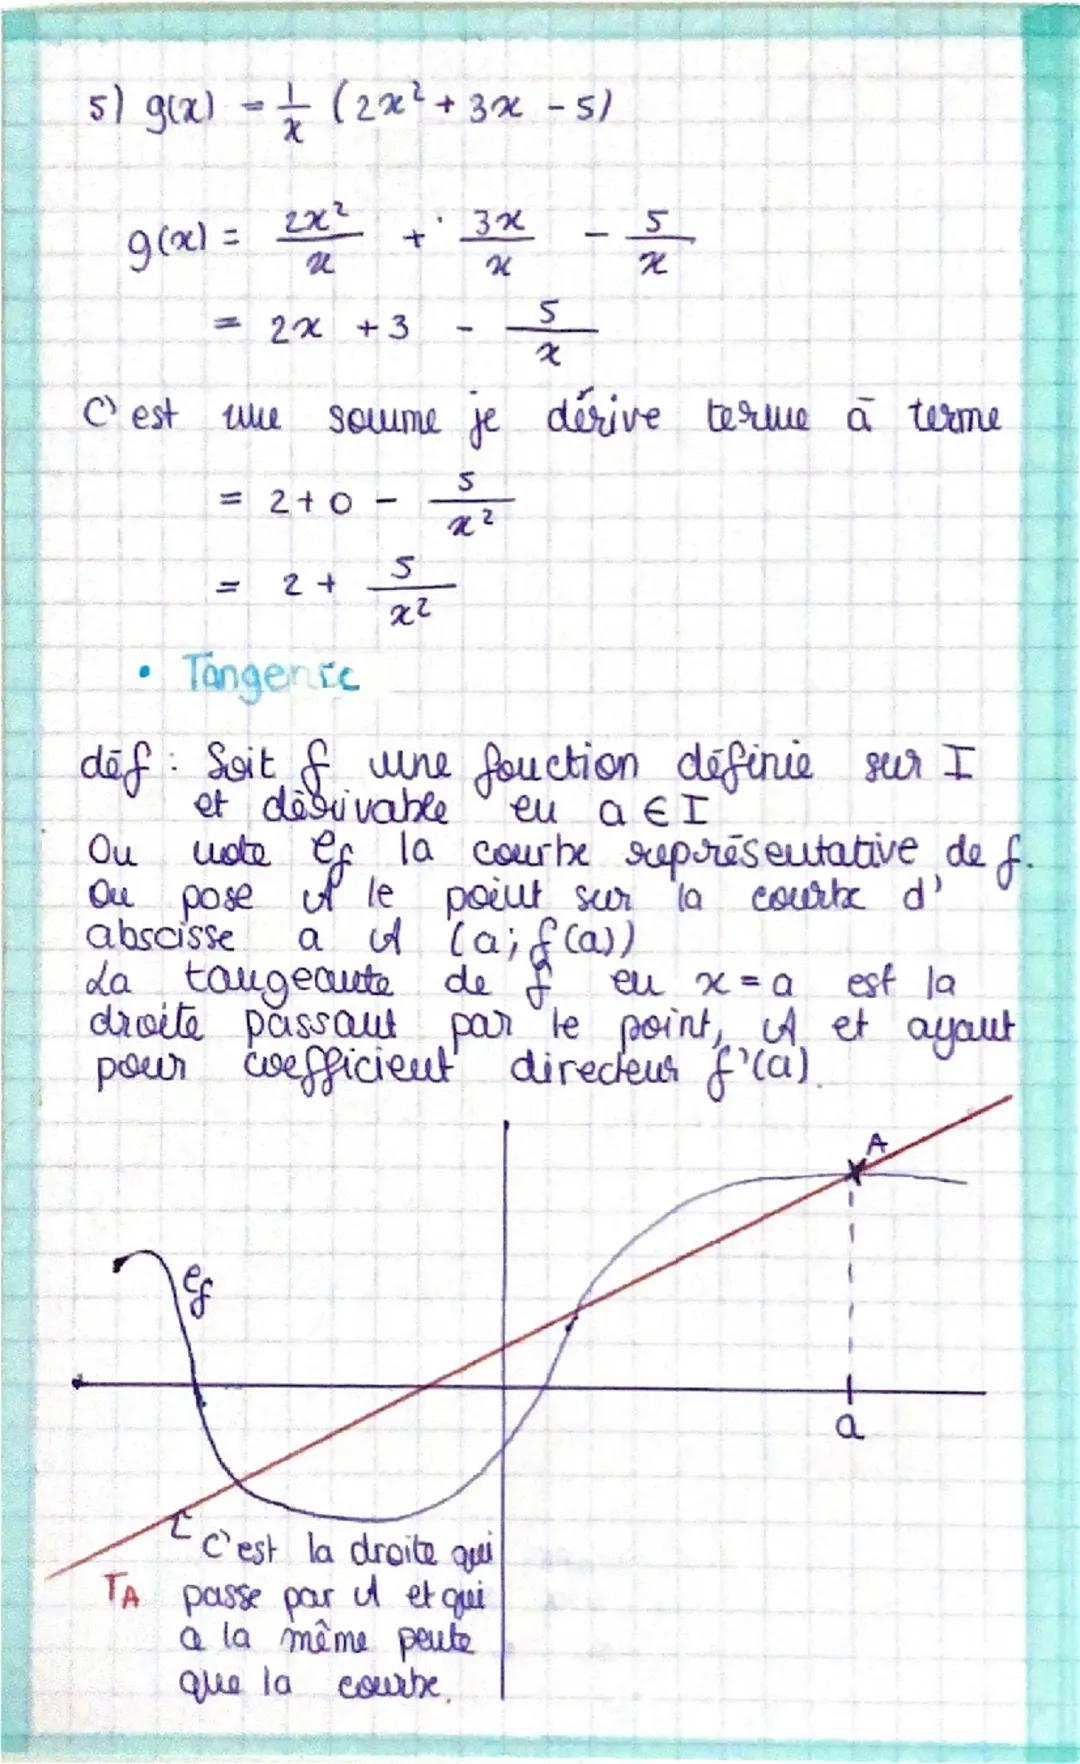 5) g(x) = 1/x (2x² + 3x - 5)
g(x) = 2x²/x + 3x/x - 5/x
= 2x + 3 - 5/x
C'est une somme je dérive terme à terme
= 2 + 0 - 5/x²
= 2 + 5/x²
• Tangente
déf : Soit f une fonction définie sur I
et dérivable en a ∈ I
On note Cf la courbe représentative de f.
On pose A le point sur la courbe d'
abscisse a A (a; f(a))
La tangeante de f en x = a est la
droite passant par le point, A et ayant
pour coefficient directeur f'(a).
A
Cf
a
C'est la droite qui
TA passe par A et qui
a la même pente
que la courbe.